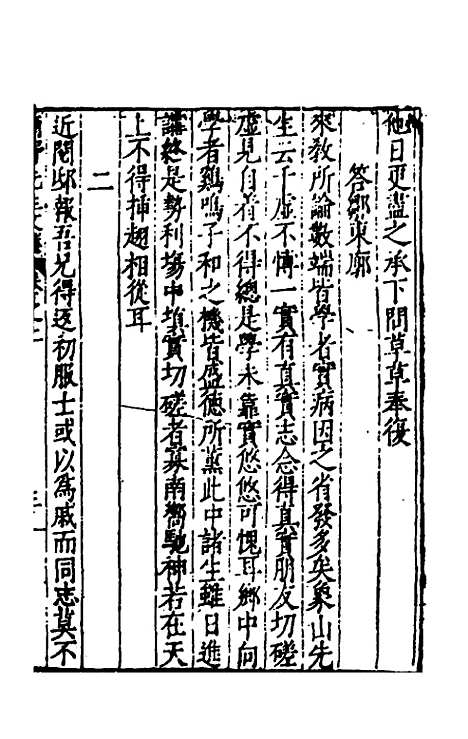 他日更盡之承下問草草奉復
答鄒東廓
來教所論數端皆學者實病因之省發多矣象山先
生云千虛不博一實有真實志念得真實朋友切磋
虛見自著不得總是學未靠實悠悠可愧耳鄉中向
學者鶏鳴子和之機皆盛德所薰此中諸生雖日進
講終是勢利塲中填實切磋者寡南嚮馳神若在天
上不得挿翅相從耳
二
近閱邸報吾兄得遂初服士或以為戚而同志莫不